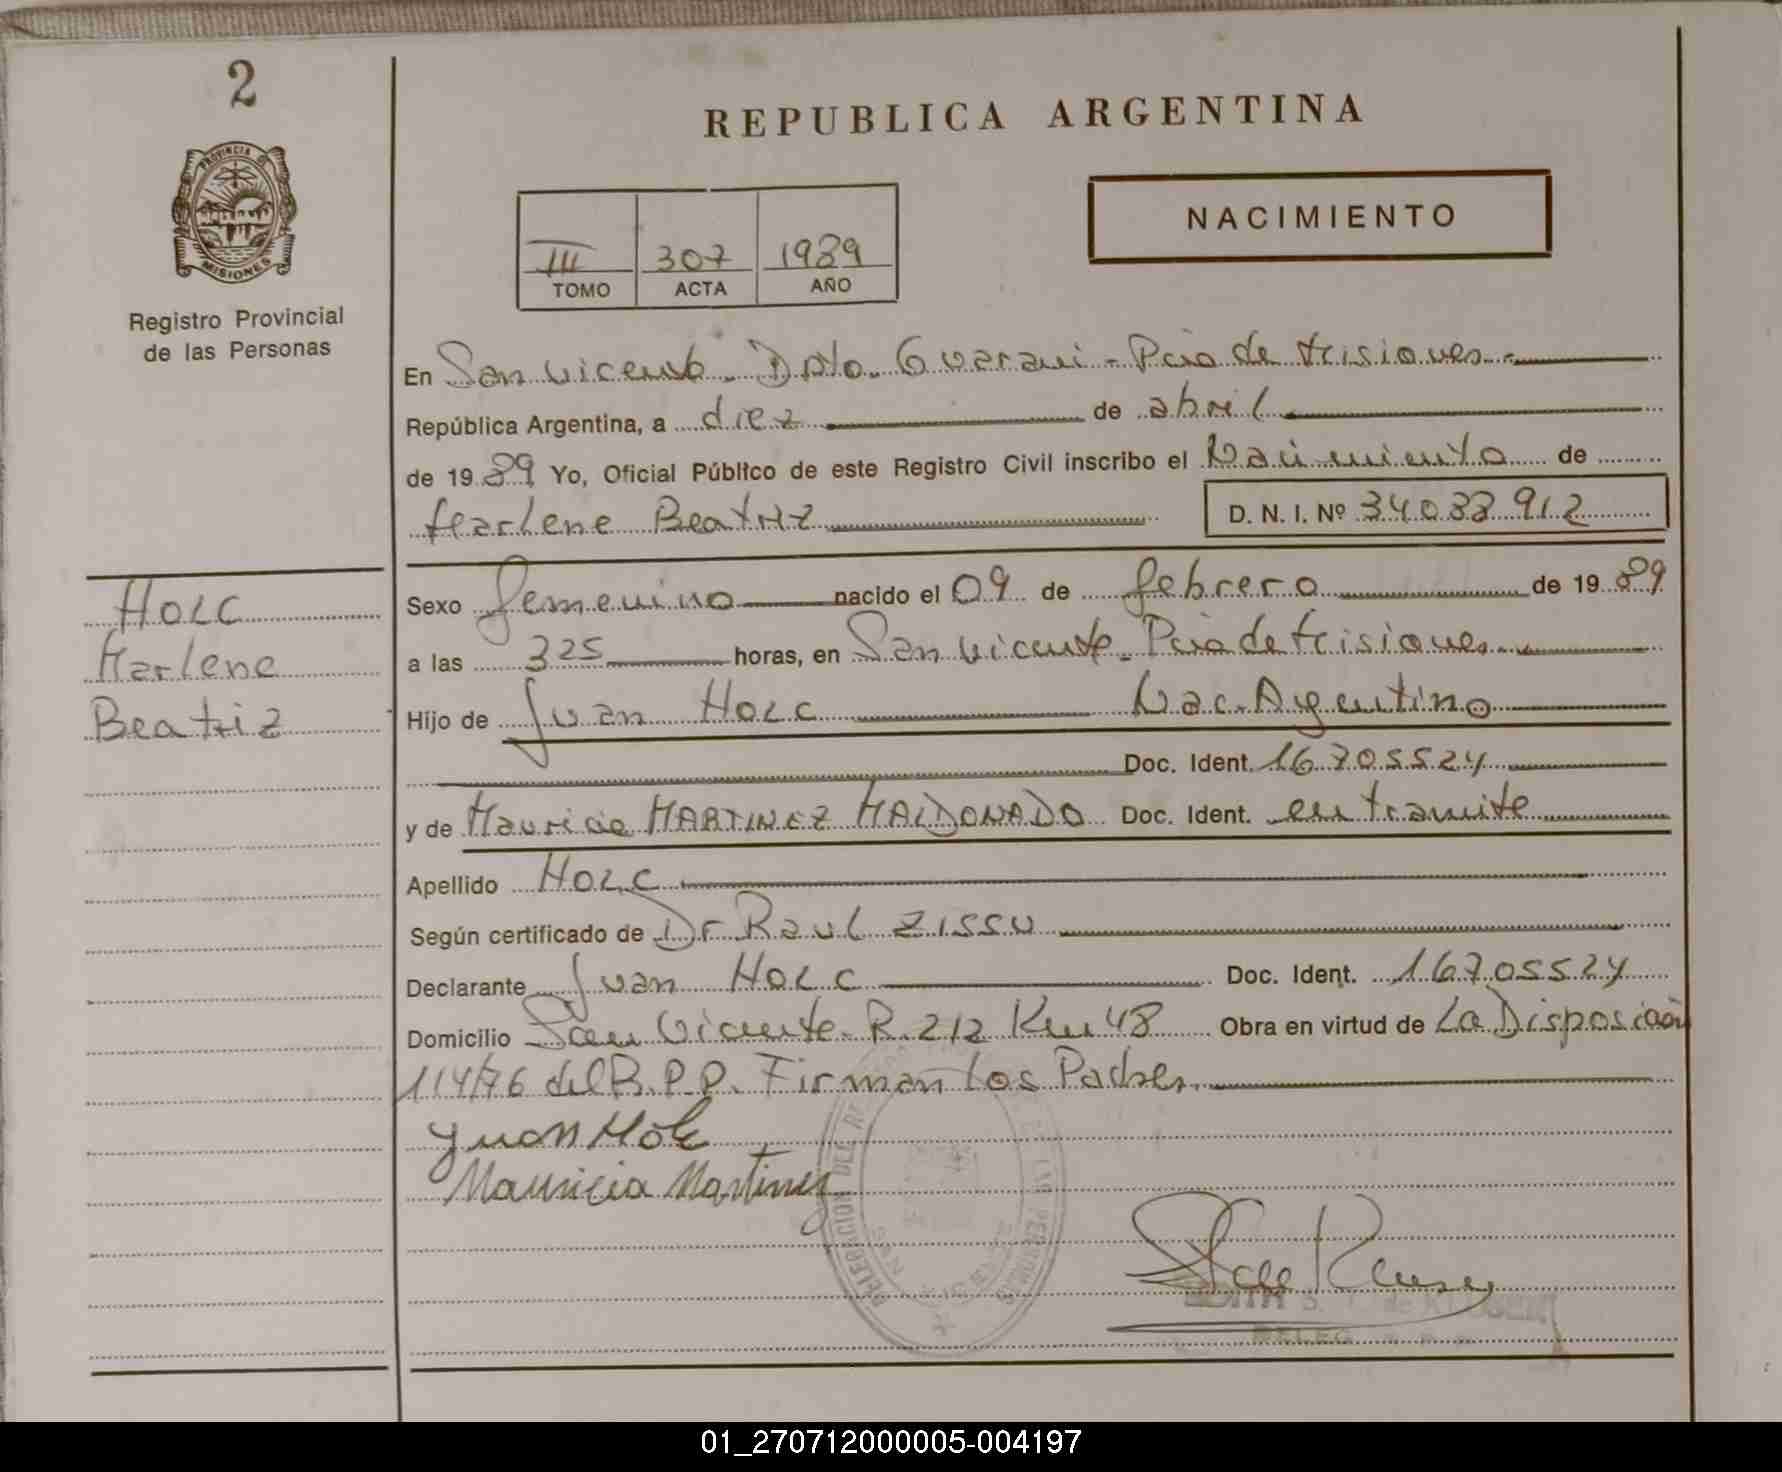 2
PROVINCIA DE
MISIONES
Registro Provincial
de las Personas
REPUBLICA ARGENTINA
NACIMIENTO
III 307 1989
TOMO ACTA AÑO
En San Vicente. Dpto. Guarani - Pcia de Misiones.
República Argentina, a diez de abril
de 1989 Yo, Oficial Público de este Registro Civil inscribo el Nacimiento de
Marlene Beatriz D. N. I. Nº 34033912
Sexo femenino nacido el 09 de febrero de 1989
a las 325 horas, en San Vicente. Pcia de Misiones.
Hijo de Juan HOLC Nac. Argentino
Doc. Ident. 16705524
y de Mauricia MARTINEZ MALDONADO Doc. Ident. en tramite
Apellido HOLC
Según certificado de Dr Raul ZISSU
Declarante Juan HOLC Doc. Ident. 16705524
Domicilio San Vicente. R. 212 Km 48 Obra en virtud de La Disposición
114/76 del R.P.P. Firman los Padres.
Juan Holc
Mauricia Martinez
HOLC
Marlene
Beatriz
DELEGACION DEL
LAS PERSONAS
SAN VICENTE
01_270712000005-004197